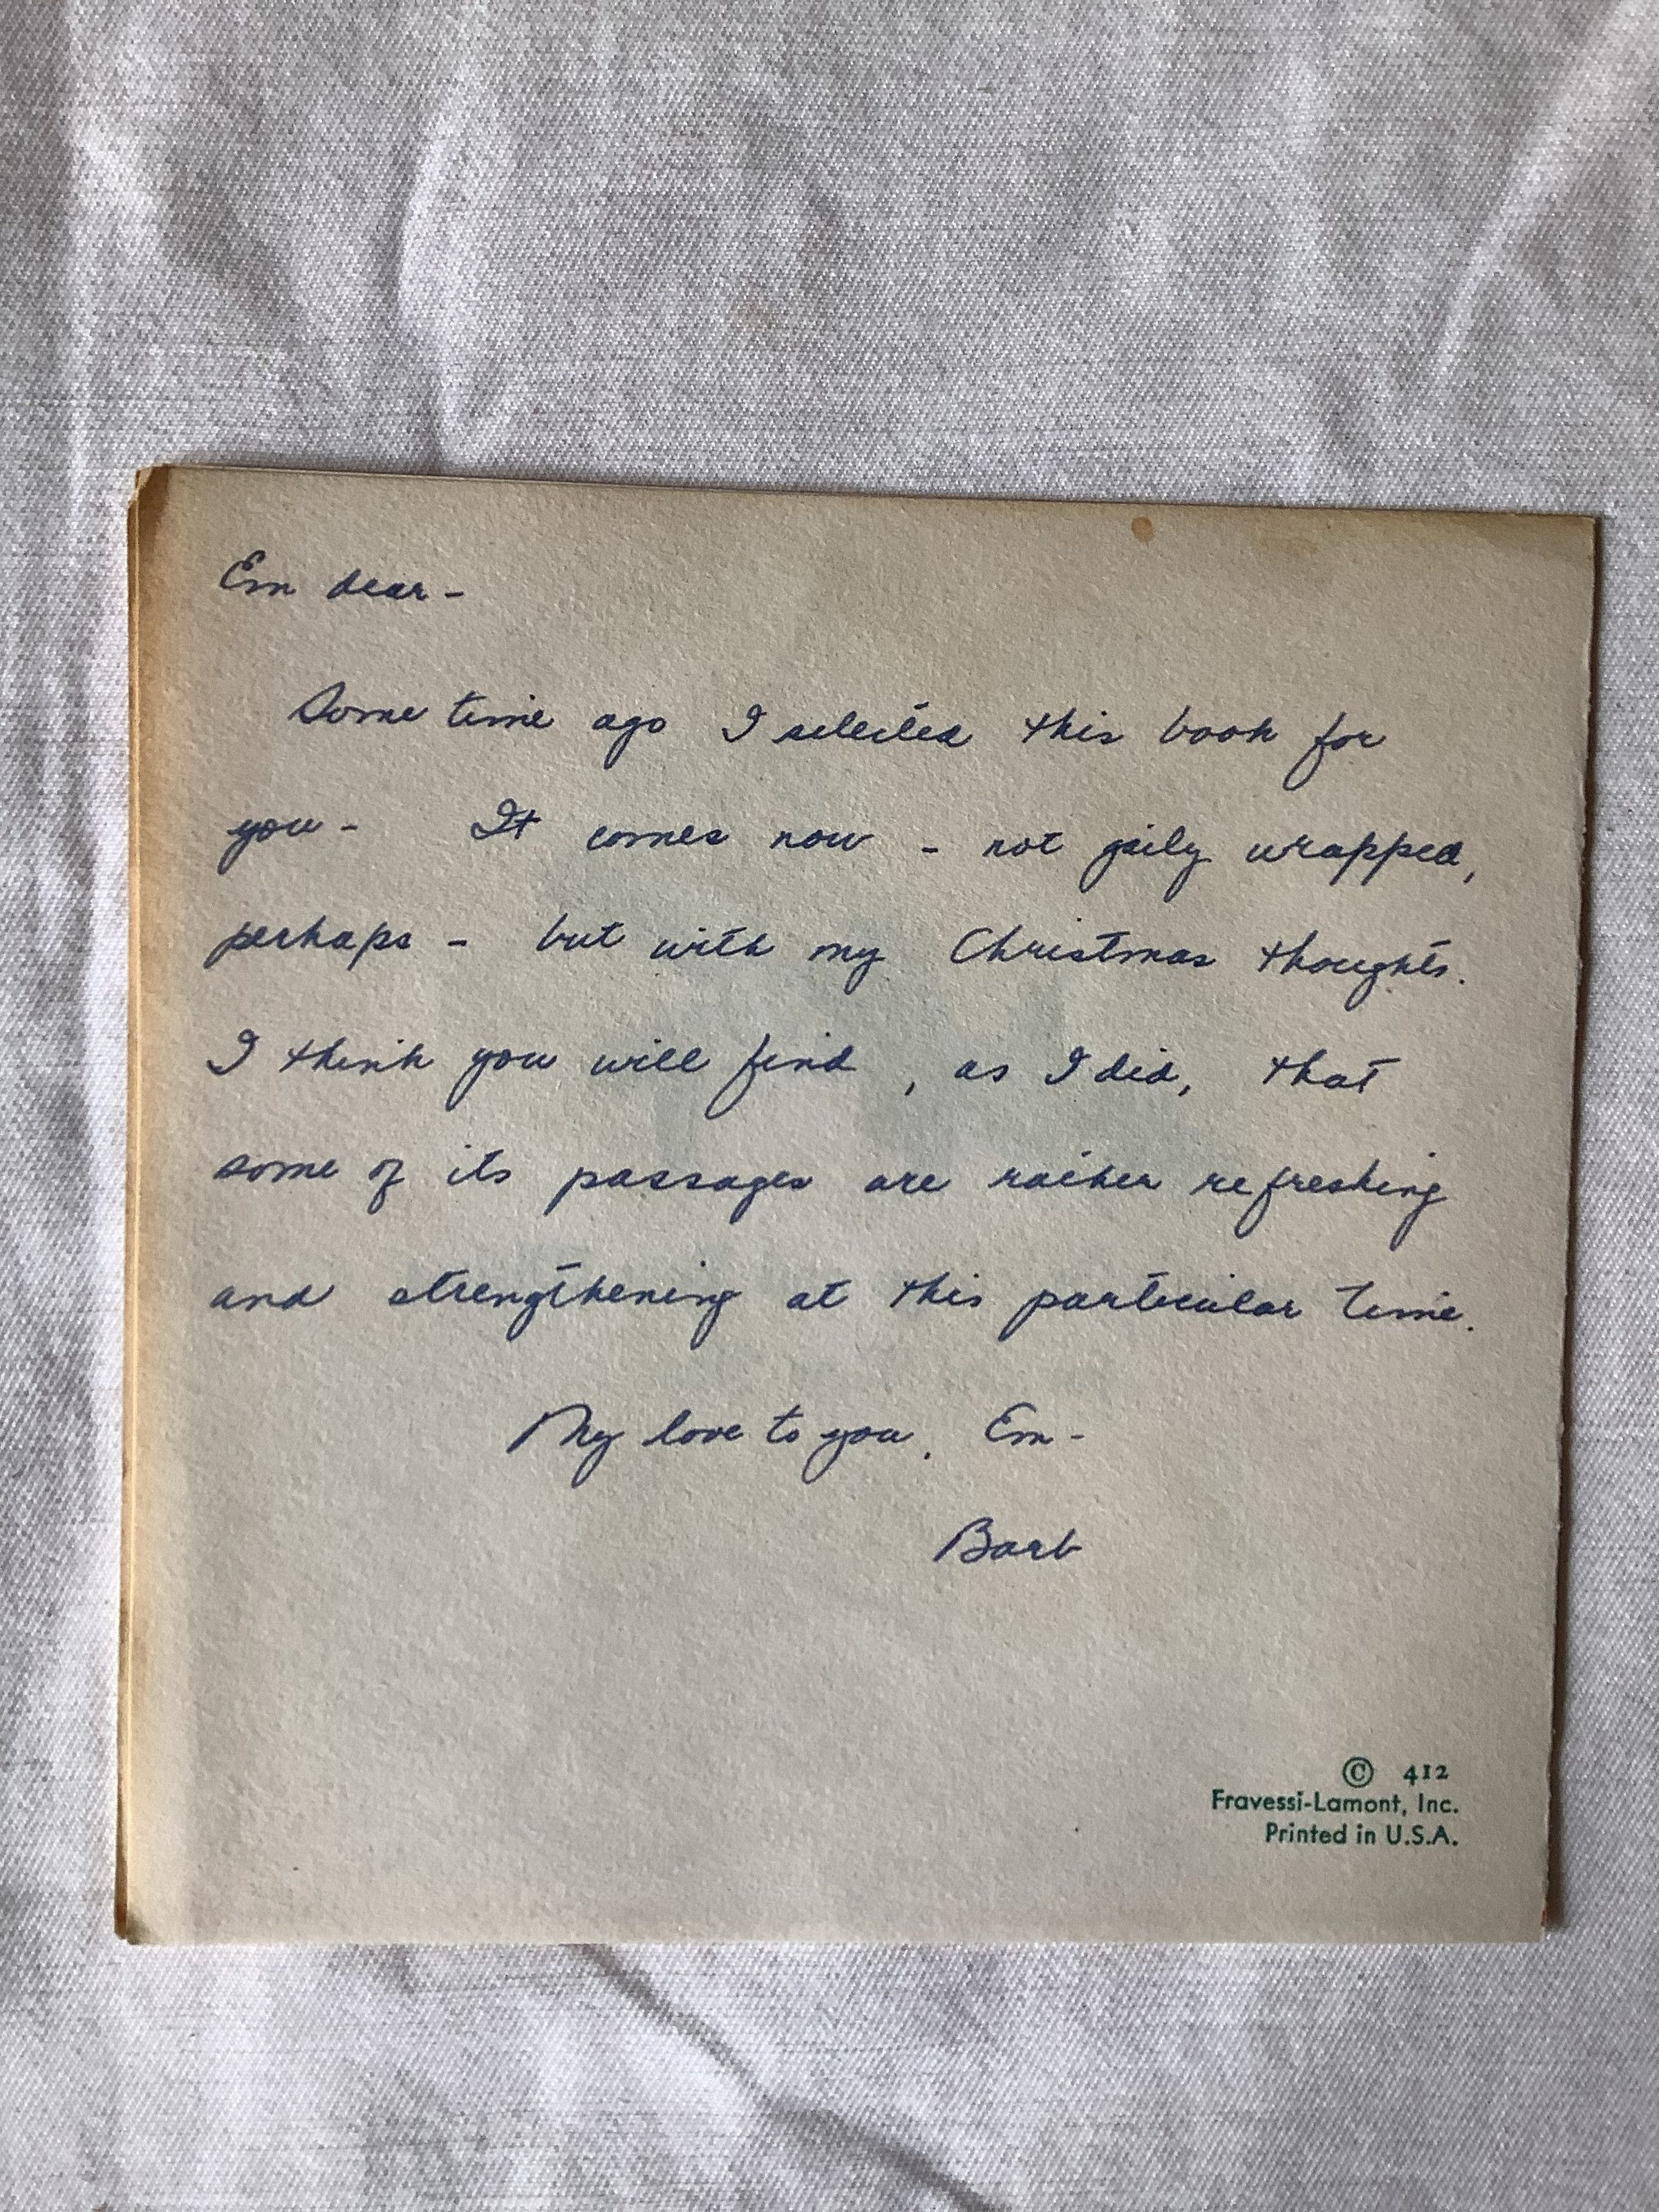 Em dear -
Some time ago I selected this book for
you - It comes now - not gaily wrapped,
perhaps - but with my Christmas thoughts.
I think you will find, as I did, that
some of its passages are rather refreshing
and strengthening at this particular time.
My love to you, Em -
Barb
© 412
Fravessi-Lamont, Inc.
Printed in U.S.A.